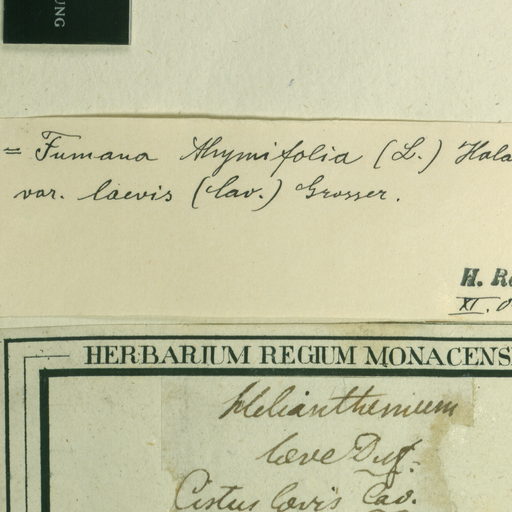 UNG
= Fumana thymifolia (L.) Hala
var. laevis (Cav.) Grosser.
H. R
XI. 0
HERBARIUM REGIUM MONACENS
Helianthemum
laeve Duf.
Cistus lævis Cav.